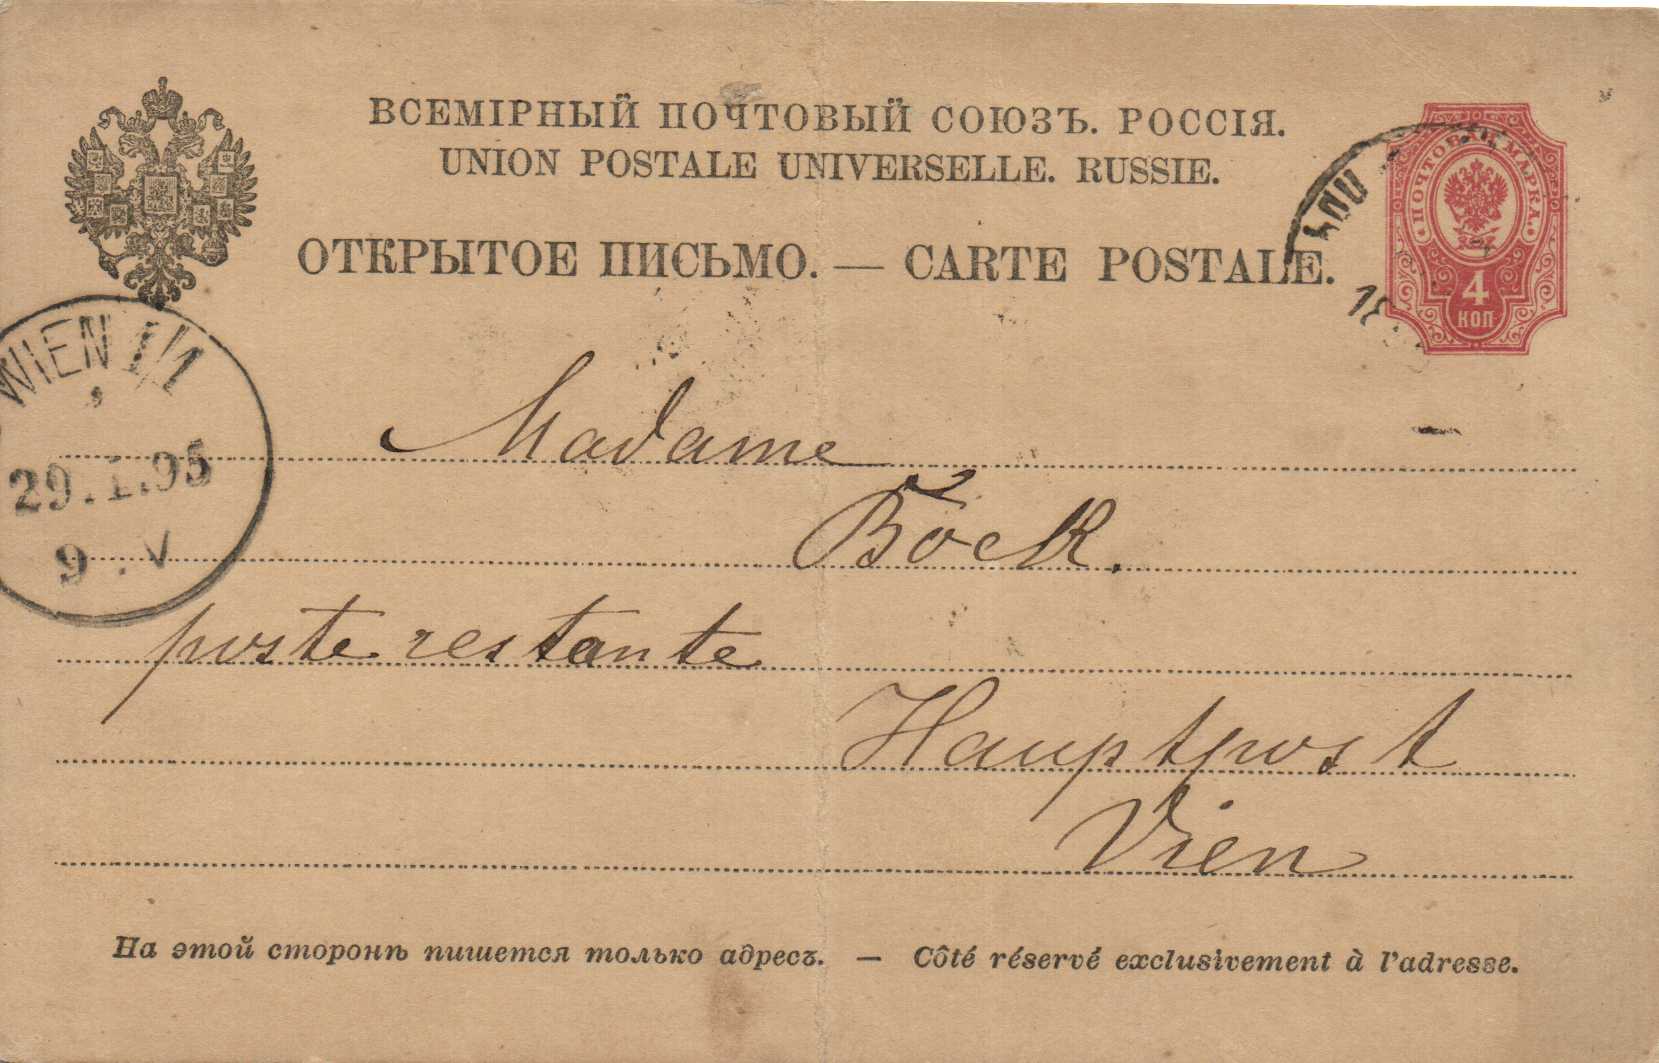 ВСЕМІРНЫЙ ПОЧТОВЫЙ СОЮЗЪ. РОССІЯ.
UNION POSTALE UNIVERSELLE. RUSSIE.
ОТКРЫТОЕ ПИСЬМО. — CARTE POSTALE.
ПОЧТОВАЯ МАРКА.
4
КОП
WIEN 1/1
29.I.95
9.V
Madame
Böck.
poste restante
Hauptpost
Wien
На этой сторонѣ пишется только адресъ. — Côté réservé exclusivement à l'adresse.